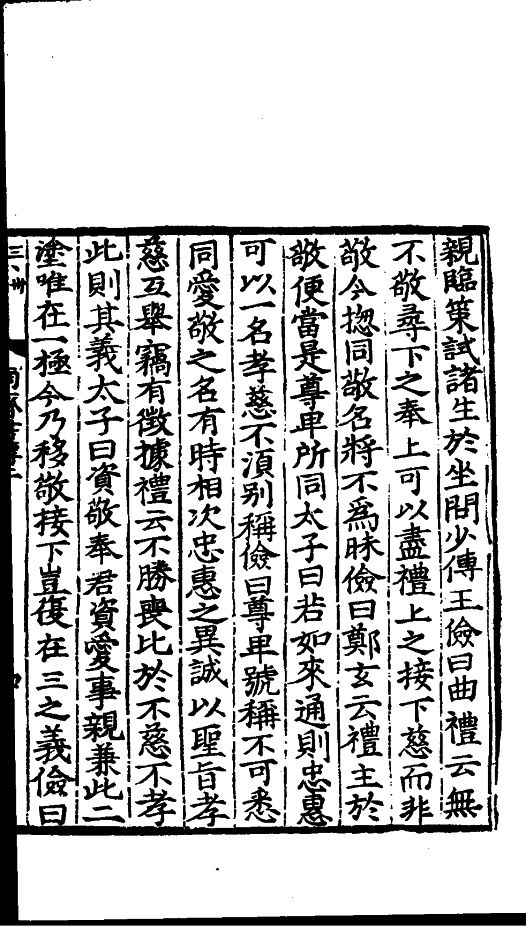 親臨策試諸生於坐問少傅王儉曰曲禮云無
不敬尋下之奉上可以盡禮上之接下慈而非
敬今揔同敬名將不爲昧儉曰鄭玄云禮主於
敬便當是尊卑所同太子曰若如來通則忠惠
可以一名孝慈不湏别稱儉曰尊卑號稱不可悉
同愛敬之名有時相次忠惠之異誠以聖旨孝
慈互舉竊有徵據禮云不勝喪比於不慈不孝
此則其義太子曰資敬奉君資愛事親兼此二
塗唯在一極今乃移敬接下豈復在三之義儉曰